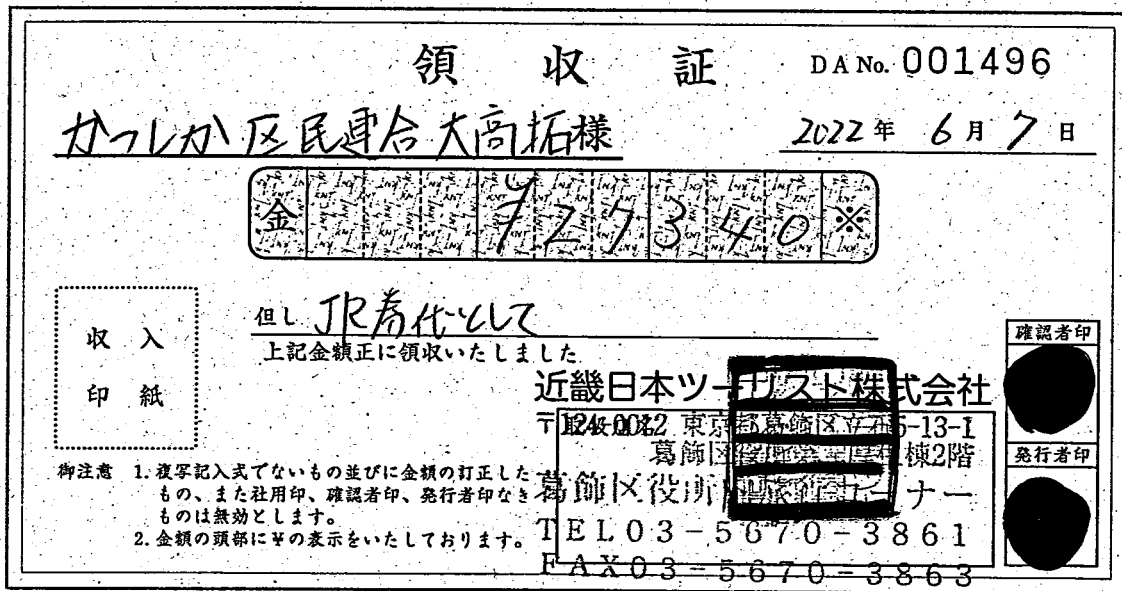 領収証 DA No. 001496
かつしか区民連合 大高拓様 2022年 6月 7日
金 ¥27340※
収入
印紙
但し JR券代として
上記金額正に領収いたしました
確認者印
近畿日本ツーリスト株式会社
〒124-0012 東京都葛飾区立石5-13-1
棟2階
葛飾区役所内旅行コーナー
TEL03-5670-3861
FAX03-5670-3863
発行者印
御注意 1. 複写記入式でないもの並びに金額の訂正した
もの、また社用印、確認者印、発行者印なき
ものは無効とします。
2. 金額の頭部に¥の表示をいたしております。